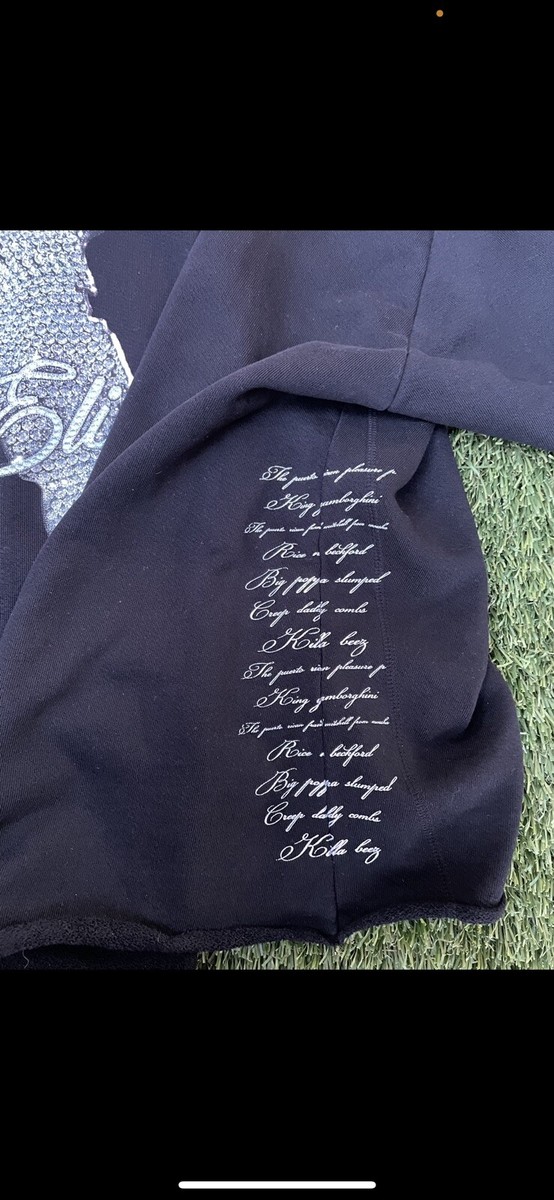 Eli
The puerto rican pleasure p
King gamborghini
The puerto rican from mitchell from
Rice n beckford
Big poppa slumped
Creep daddy combs
Killa beez
The puerto rican pleasure p
King gamborghini
The puerto rican from mitchell from
Rice n beckford
Big poppa slumped
Creep daddy combs
Killa beez